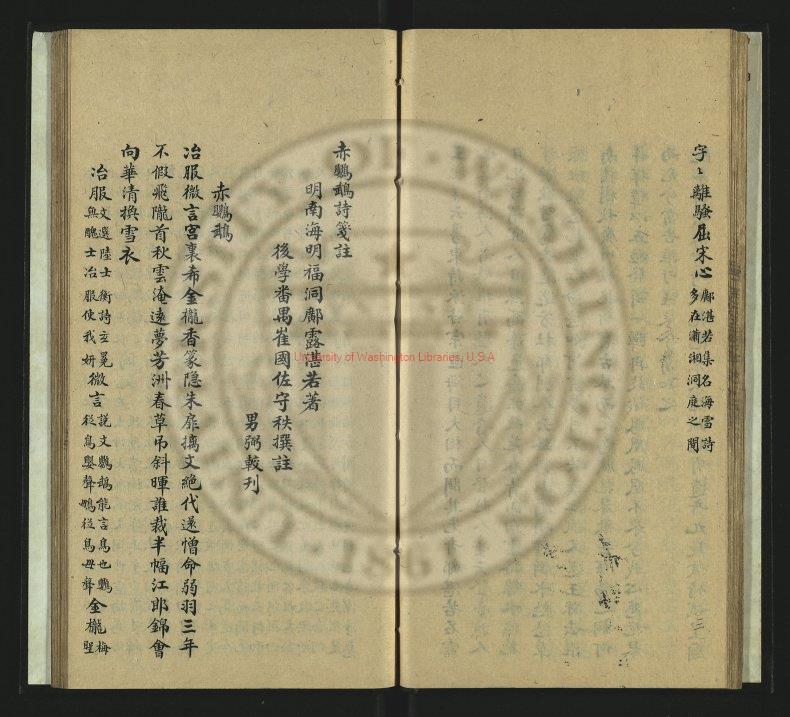 字〻離騷屈宋心鄺湛若集名海雪詩
多在瀟湘洞庭之間
赤鸚鵡詩箋註
明南海明福洞鄺露湛若著
後學番禺崔國佐守秩撰註
男弼較刊
赤鸚鵡
冶服微言宮裏希金櫳香篆隱朱扉摛文絕代還憎命弱羽三年
不假飛隴首秋雲淹遠夢芳洲春草弔斜暉誰裁半幅江郎錦會
向華清換雪衣
冶服文選陸士衡詩玄冕
無醜士冶服使我妍微言說文鸚鵡能言鳥也鸚
從鳥嬰聲鵡從鳥母聲金櫳梅
聖
University of Washington Libraries, U.S.A